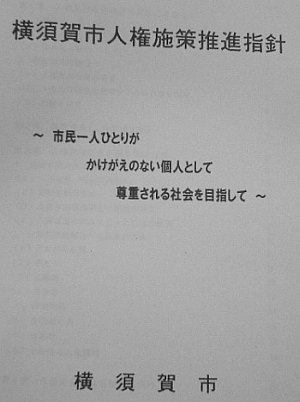 横須賀市人権施策推進指針
～ 市民一人ひとりが
かけがえのない個人として
尊重される社会を目指して ～
横 須 賀 市